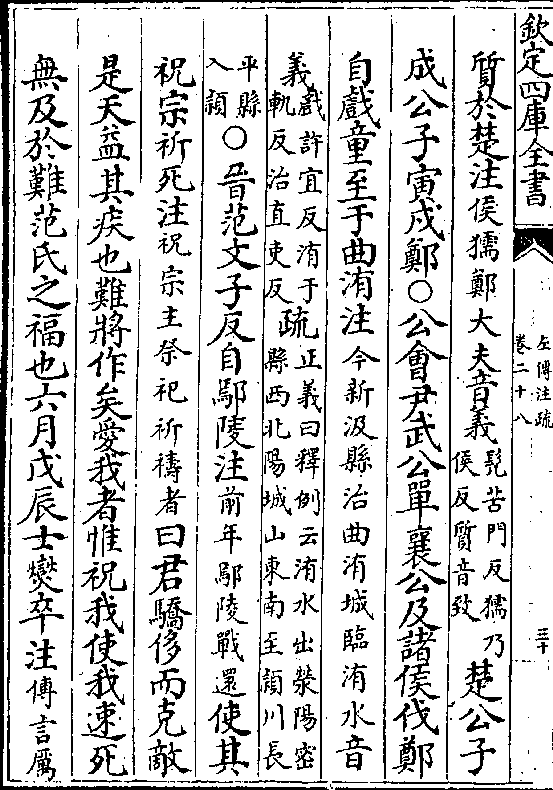 欽定四庫全書
左傳注疏
卷二十八
三十
質於楚注侯獳鄭大夫音義髡苦門反獳乃
侯反質音致楚公子
成公子寅戍鄭○公會尹武公單襄公及諸侯伐鄭
自戲童至于曲洧注今新汲縣治曲洧城臨洧水音
義戲許宜反洧于
軌反治直吏反疏正義曰釋例云洧水出滎陽密
縣西北陽城山東南至潁川長
平縣
入潁○晉范文子反自鄢陵注前年鄢陵戰還使其
祝宗祈死注祝宗主祭祀祈禱者曰君驕侈而克敵
是天益其疾也難將作矣愛我者惟祝我使我速死
無及於難范氏之福也六月戊辰士燮卒注傳言厲